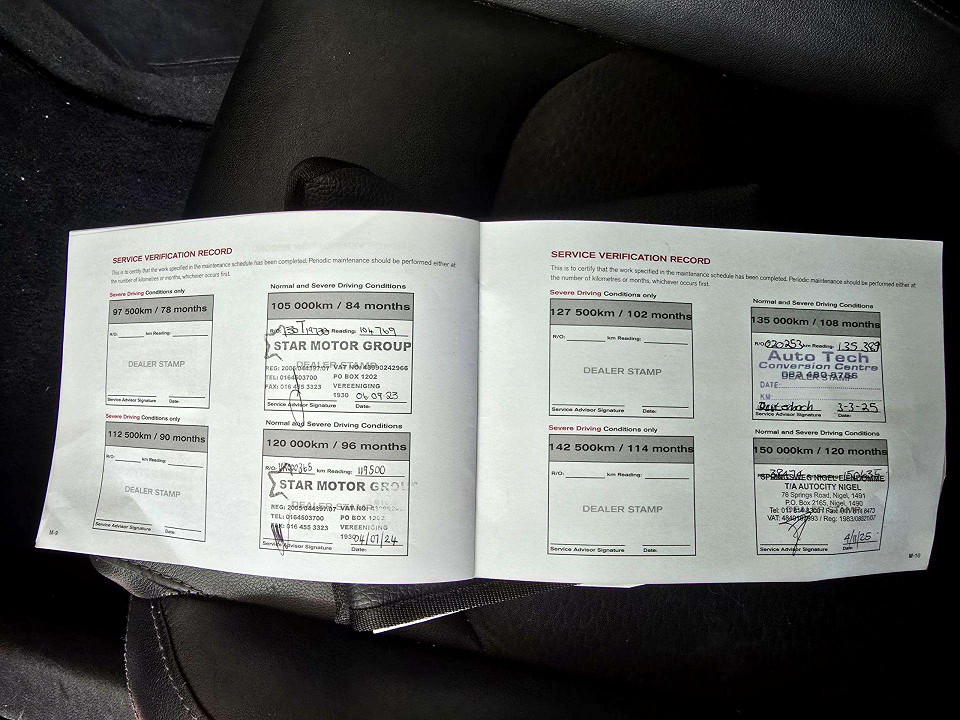 SERVICE VERIFICATION RECORD
This is to certify that the work specified in the maintenance schedule has been completed. Periodic maintenance should be performed either at
the number of kilometres or months, whichever occurs first.
Severe Driving Conditions only
97 500km / 78 months
R/O: km Reading:
DEALER STAMP
Service Advisor Signature Date:
Normal and Severe Driving Conditions
105 000km / 84 months
R/O: km Reading: 104769
STAR MOTOR GROUP
DEALER STAMP
REG: 2005/044397/07 VAT NO:
TEL: 0164503700 PO BOX 1202
FAX: 016 455 3323 VEREENIGING
1930 06.09.23
Service Advisor Signature Date:
Severe Driving Conditions only
112 500km / 90 months
R/O: km Reading:
DEALER STAMP
Service Advisor Signature Date:
Normal and Severe Driving Conditions
120 000km / 96 months
R/O: km Reading: 119500
STAR MOTOR GROUP
REG: 2005/044397/07 VAT NO:
TEL: 0164503700 PO BOX 1202
FAX: 016 455 3323 VEREENIGING
1930 04/07/24
Service Advisor Signature Date:
M-9
SERVICE VERIFICATION RECORD
This is to certify that the work specified in the maintenance schedule has been completed. Periodic maintenance should be performed either at
the number of kilometres or months, whichever occurs first.
Severe Driving Conditions only
127 500km / 102 months
R/O: km Reading:
DEALER STAMP
Service Advisor Signature Date:
Normal and Severe Driving Conditions
135 000km / 108 months
R/O: 020253 km Reading: 135 389
Auto Tech
Conversion Centre
DEALER STAMP
DATE:
KM:
3-3-25
Service Advisor Signature Date:
Severe Driving Conditions only
142 500km / 114 months
R/O: km Reading:
DEALER STAMP
Service Advisor Signature Date:
Normal and Severe Driving Conditions
150 000km / 120 months
SPRINGSWEG NIGEL EIENDOMME
T/A AUTOCITY NIGEL
76 Springs Road, Nigel, 1491
P.O. Box 2165, Nigel, 1490
4/11/25
Service Advisor Signature Date:
M-10